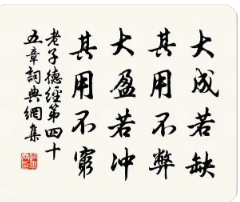 大成若缺
其用不弊
大盈若冲
其用不穷
老子德經第四十
五章詞典網集